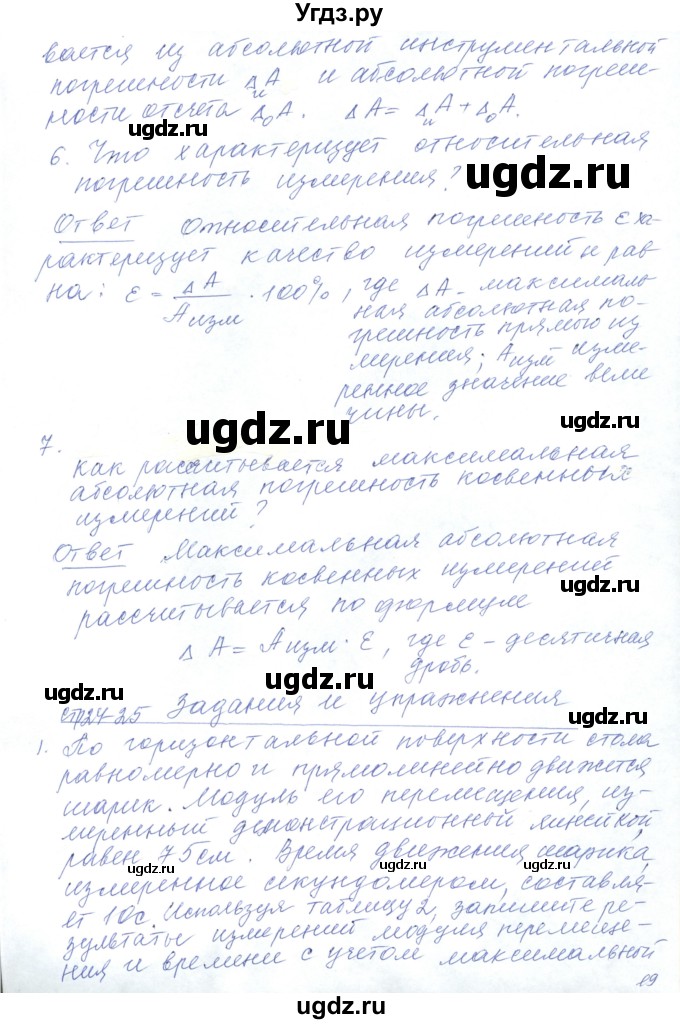 Угдз.ру
вается из абсолютной инструментальной
погрешности ΔиА и абсолютной погреш-
ности отсчета Δ₀А. ΔА = ΔиА + Δ₀А.
ugdz.ru ugdz.ru
6. Что характеризует относительная
погрешность измерения?
ugdz.ru
Ответ Относительная погрешность ε ха-
рактеризует качество измерений и рав-
на: ε = ΔА/Аизм · 100%, где ΔА - максималь-
ная абсолютная по-
грешность прямого из
мерения; Аизм изме-
ренное значение вели
чины.
ugdz.ru
7.
Как рассчитывается максимальная
абсолютная погрешность косвенных
измерений?
ugdz.ru
Ответ Максимальная абсолютная
погрешность косвенных измерений
рассчитывается по формуле
ugdz.ru
ΔА = Аизм · ε, где ε - десятичная
дробь.
ugdz.ru ugdz.ru
стр24-25 Задания и упражнения
1. По горизонтальной поверхности стола
равномерно и прямолинейно движется
шарик. Модуль его перемещения, из-
меренный демонстрационной линейкой,
равен 75 см. Время движения шарика,
ugdz.ru ugdz.ru
измеренное секундомером, составля-
ет 10с. Используя таблицу 2, запишите ре-
зультаты измерений модуля перемеще-
ния и времени с учетом максимальной
19
ugdz.ru